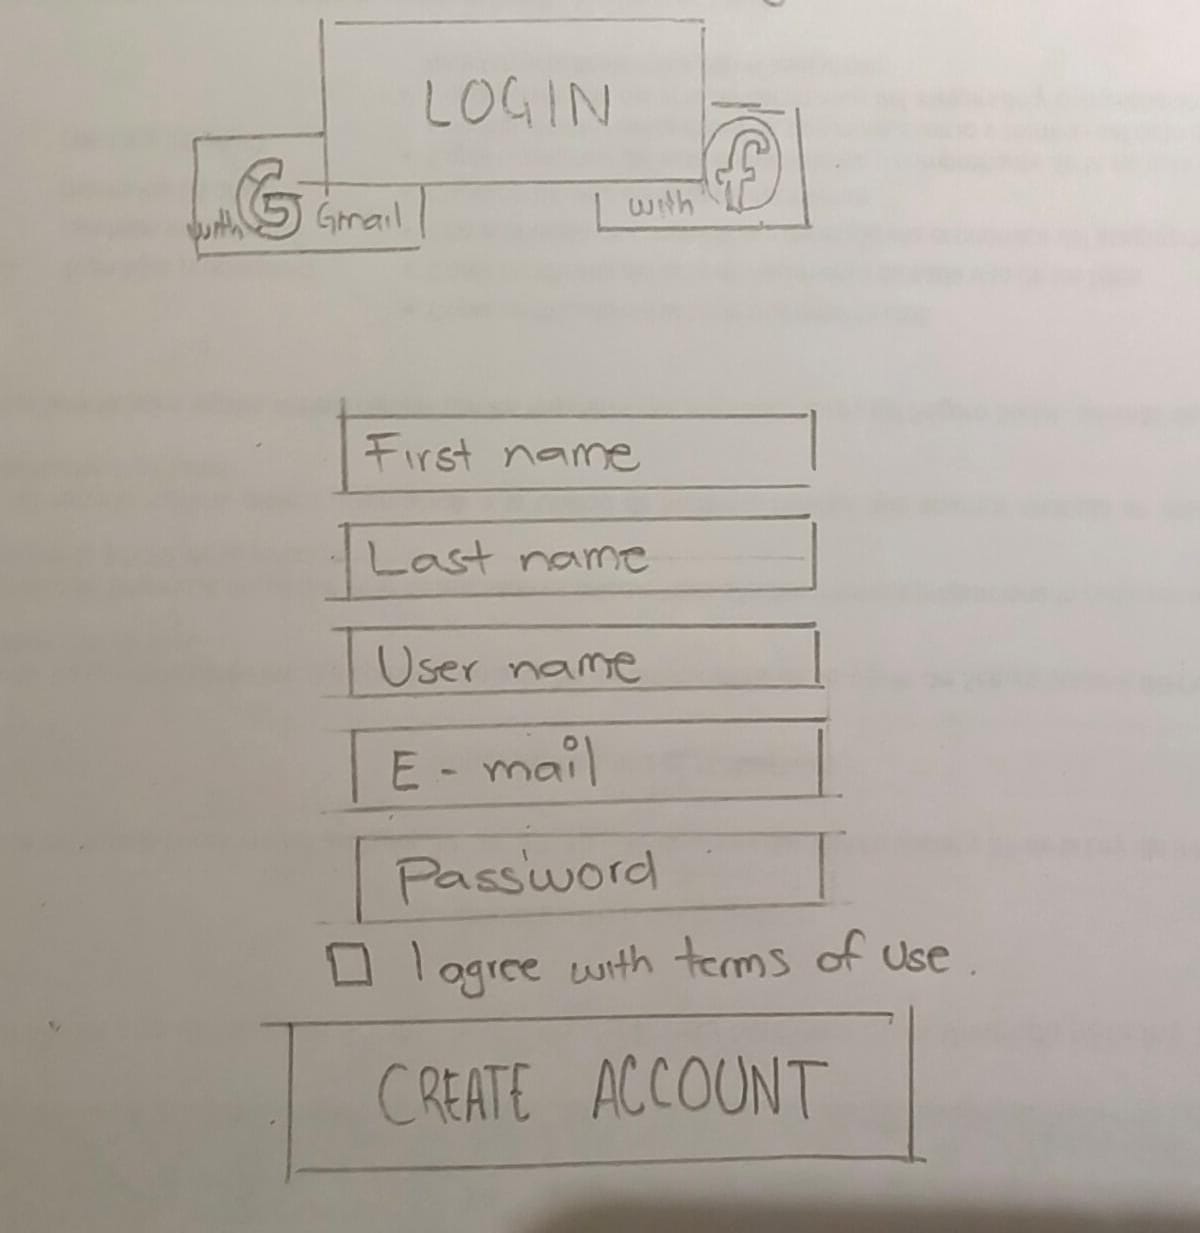 LOGIN
with G Gmail
with f
First name
Last name
User name
E - mail
Password
I agree with terms of use.
CREATE ACCOUNT